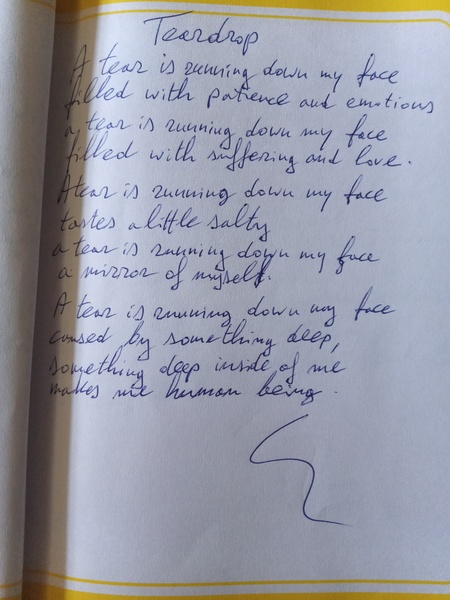 Teardrop
A tear is running down my face
filled with patience and emotions
a tear is running down my face
filled with suffering and love.
A tear is running down my face
tastes a little salty
a tear is running down my face
a mirror of myself.
A tear is running down my face
caused by something deep,
something deep inside of me
makes me human being.